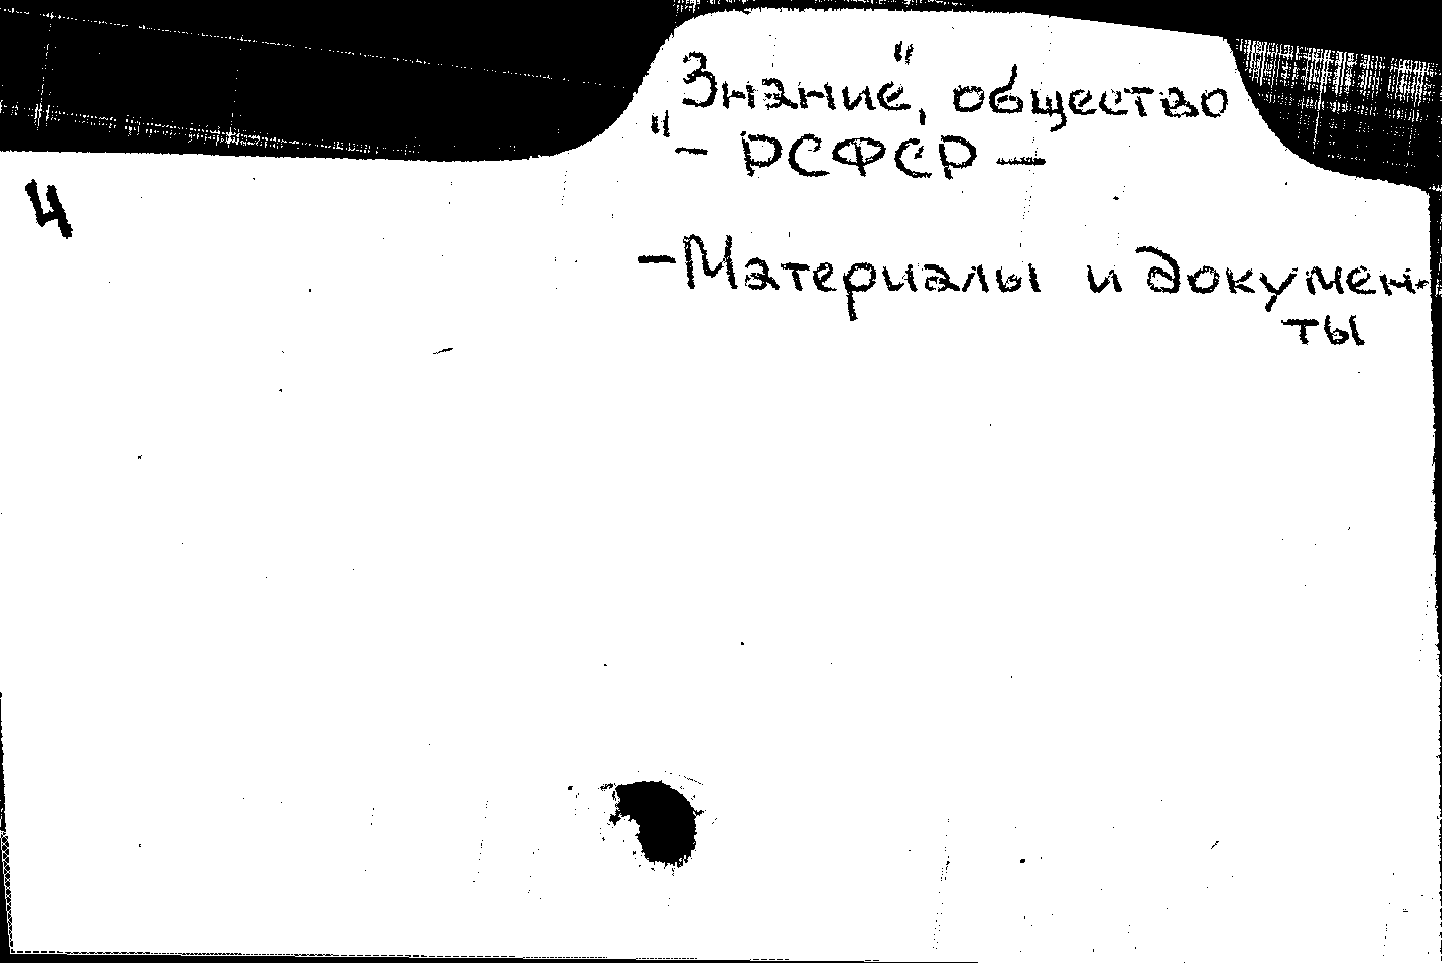 "Знание", общество
- РСФСР -
4
- Материалы и докумен-
ты